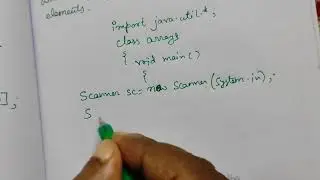 elements.
import java.util.*;
class arrays
{ void main()
{
Scanner sc = new Scanner(System.in);
S
];